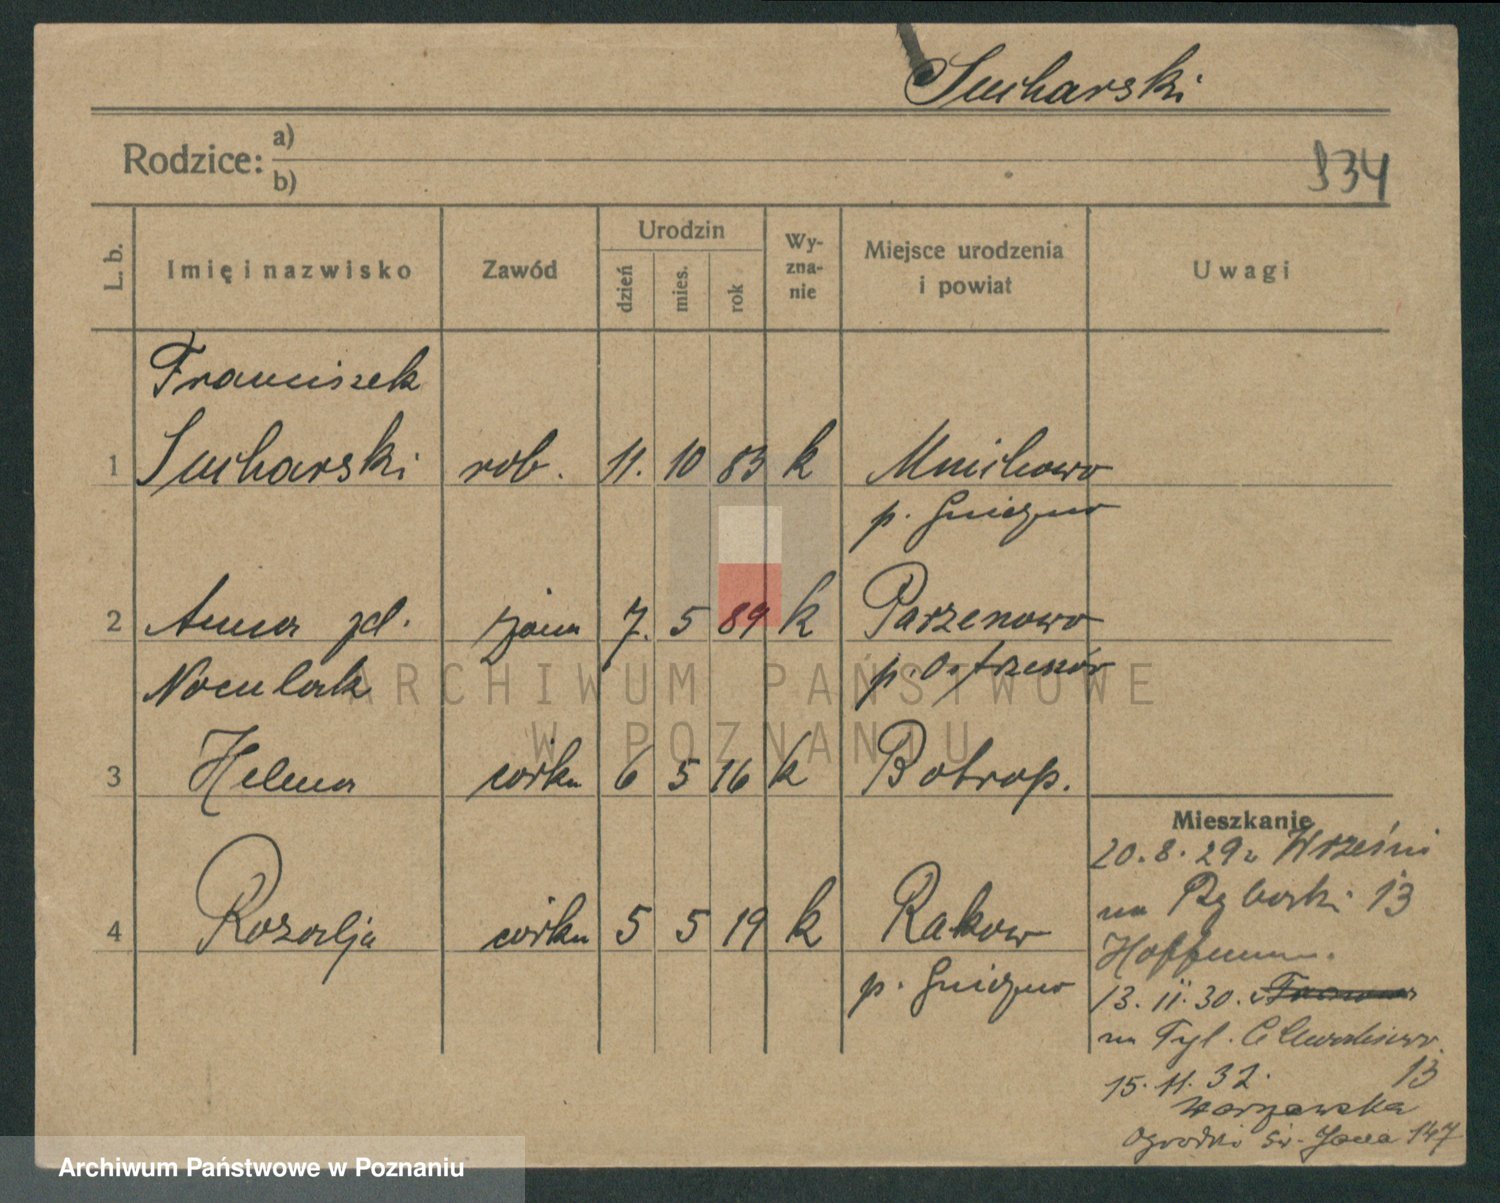 Sucharski
Rodzice: a)
b)
334
L. b.
Imię i nazwisko
Zawód
Urodzin
dzień
mies.
rok
Wy-
zna-
nie
Miejsce urodzenia
i powiat
Uwagi
Franciszek
1 Sucharski rob. 11. 10 83 k Mnichowo
p. Gniezno
2 Anna zd. żona 7. 5 89 k Parzenowo
Noculak p. Ostrzeszów
3 Helena córka 6 5 16 k Botrop.
4 Rozalja córka 5 5 19 k Rakow
p. Gniezno
Mieszkanie
20.8.29 z Wrześni
na Rybaki 13
Hoffmann.
13.11.30.
na Tyl. Chwaliszewo
13
15.11.32.
Warszawska
Ogrodki Św. Jana 147
ARCHIWUM PAŃSTWOWE
W POZNANIU
Archiwum Państwowe w Poznaniu